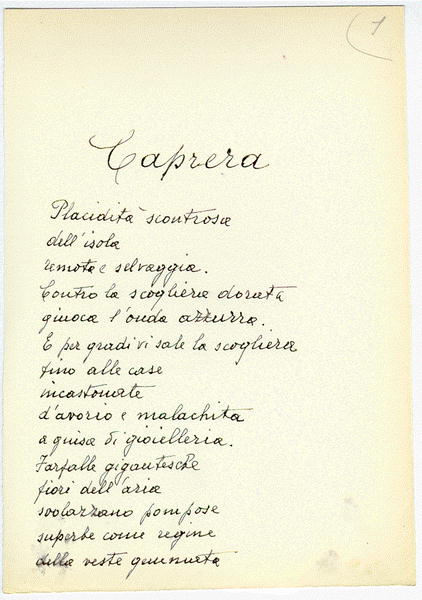 1
Caprera
Placidità scontrosa
dell'isola
remota e selvaggia.
Contro la scogliera dorata
giuoca l'onda azzurra.
E per gradi vi sale la scogliera
fino alle case
incastonate
d'avorio e malachita
a guisa di gioielleria.
Farfalle gigantesche
fiori dell'aria
svolazzano pompose
superbe come regine
dalla veste gemmata